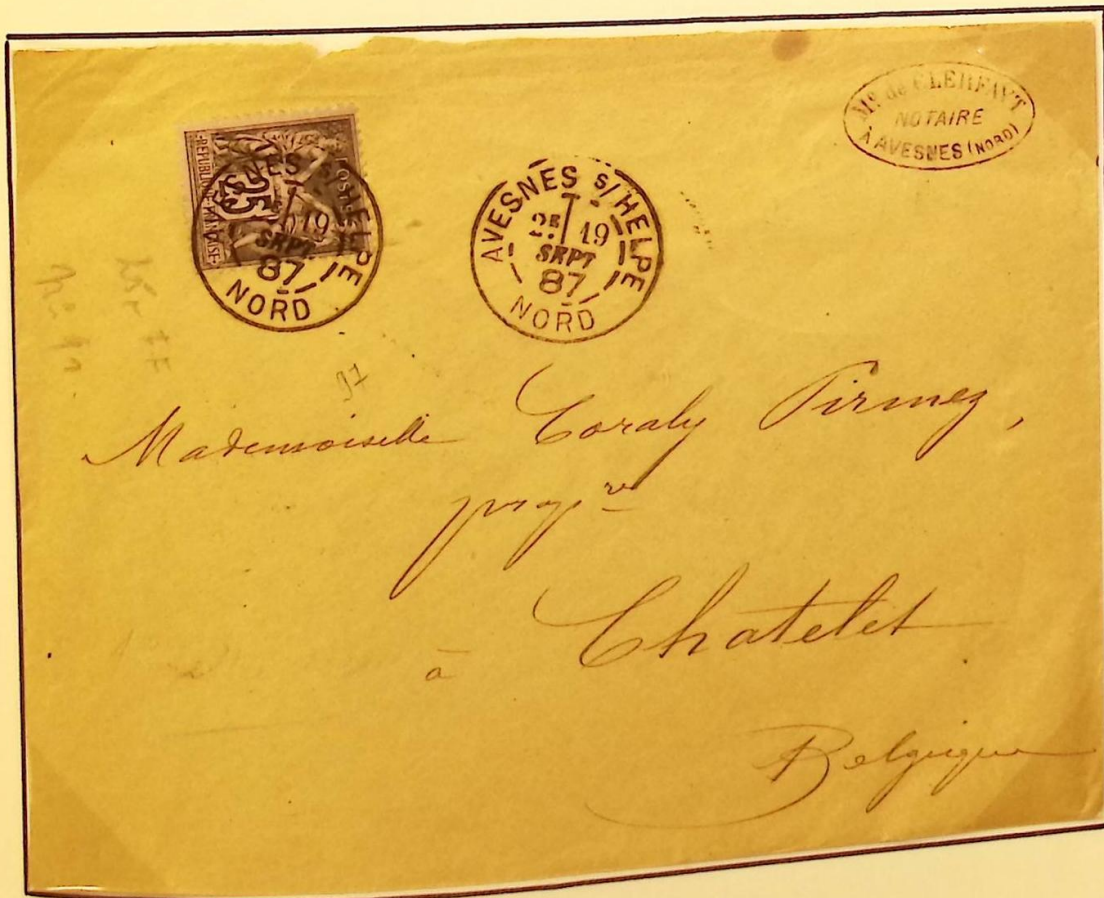 Me. de CLERFAYT
NOTAIRE
À AVESNES (NORD)
POSTES
25
RÉPUBLIQUE FRANÇAISE
AVESNES S/HELPE
19
SEPT
87
NORD
AVESNES S/HELPE
2E 19
SEPT
87
NORD
97
Mademoiselle Coraly Pirmez,
propre
à Chatelet
Belgique